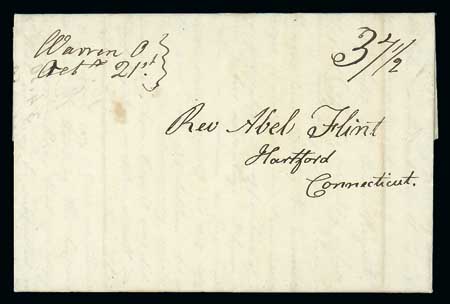 Warren O
Octr 21st
37 1/2
Rev Abel Flint
Hartford
Connecticut.